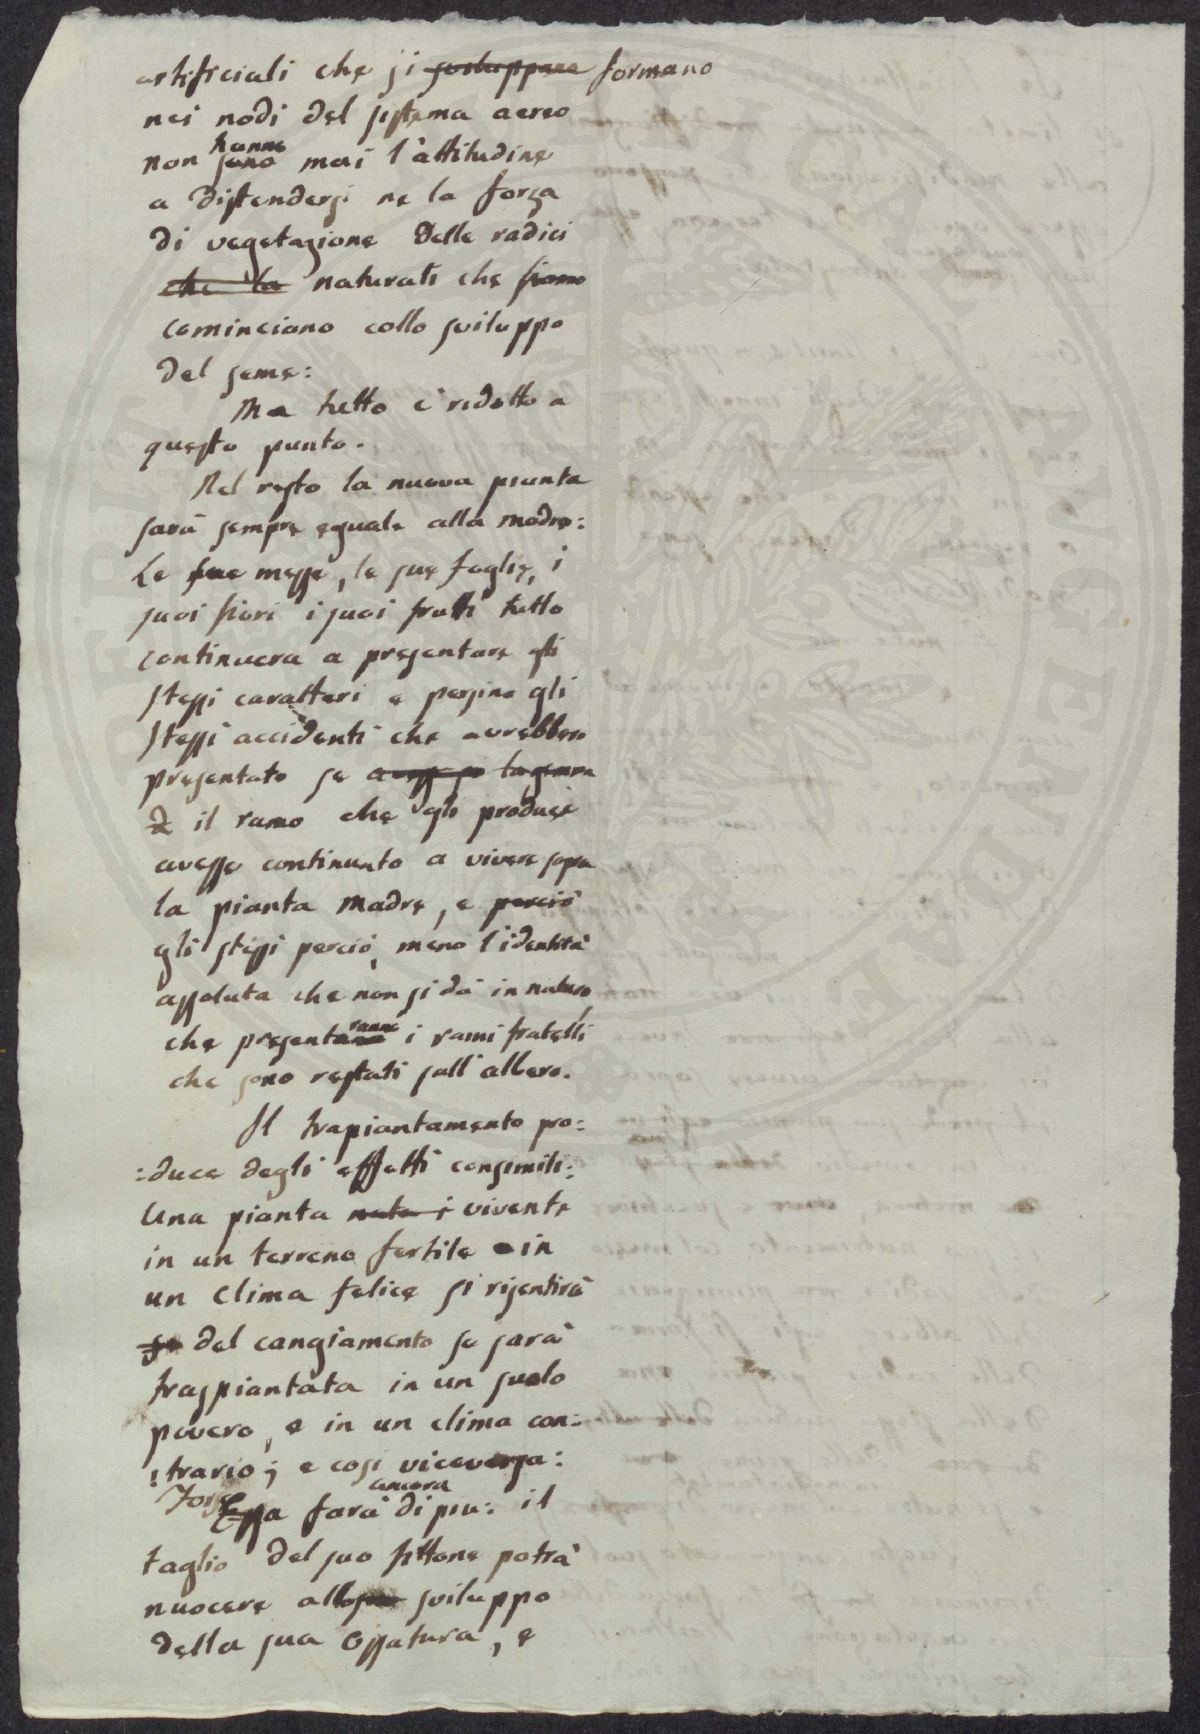 artificiali che si sviluppano formano
nei nodi del sistema aereo
hanno
non sono mai l'attitudine
a distendersi ne la forza
di vegetazione delle radici
che la naturali che siano
cominciano collo sviluppo
del seme:
Ma tutto è ridotto a
questo punto.
Nel resto la nuova pianta
sarà sempre eguale alla madre:
Le sue messe, le sue foglie, i
suoi fiori i suoi frutti tutto
continuera a presentare gli
stessi caratteri e persino gli
stessi accidenti che avrebbero
presentato se avesse la gemma
il ramo che gli produce
avesse continuato a vivere sopra
la pianta madre, e perciò
gli stessi perciò, meno l'identità
assoluta che non si dà in natura,
ranno
che presentano i rami fratelli
che sono restati sull'albero.
Il trapiantamento pro:
:duce degli effetti consimili:
Una pianta nata i vivente
in un terreno fertile e in
un clima felice si risentirà
se del cangiamento se sarà
traspiantata in un suolo
povero, e in un clima con:
:trario; e così viceversa:
ancora
Forse Essa farà di più: il
taglio del suo fittone potrà
nuocere allo suo sviluppo
della sua ossatura, e